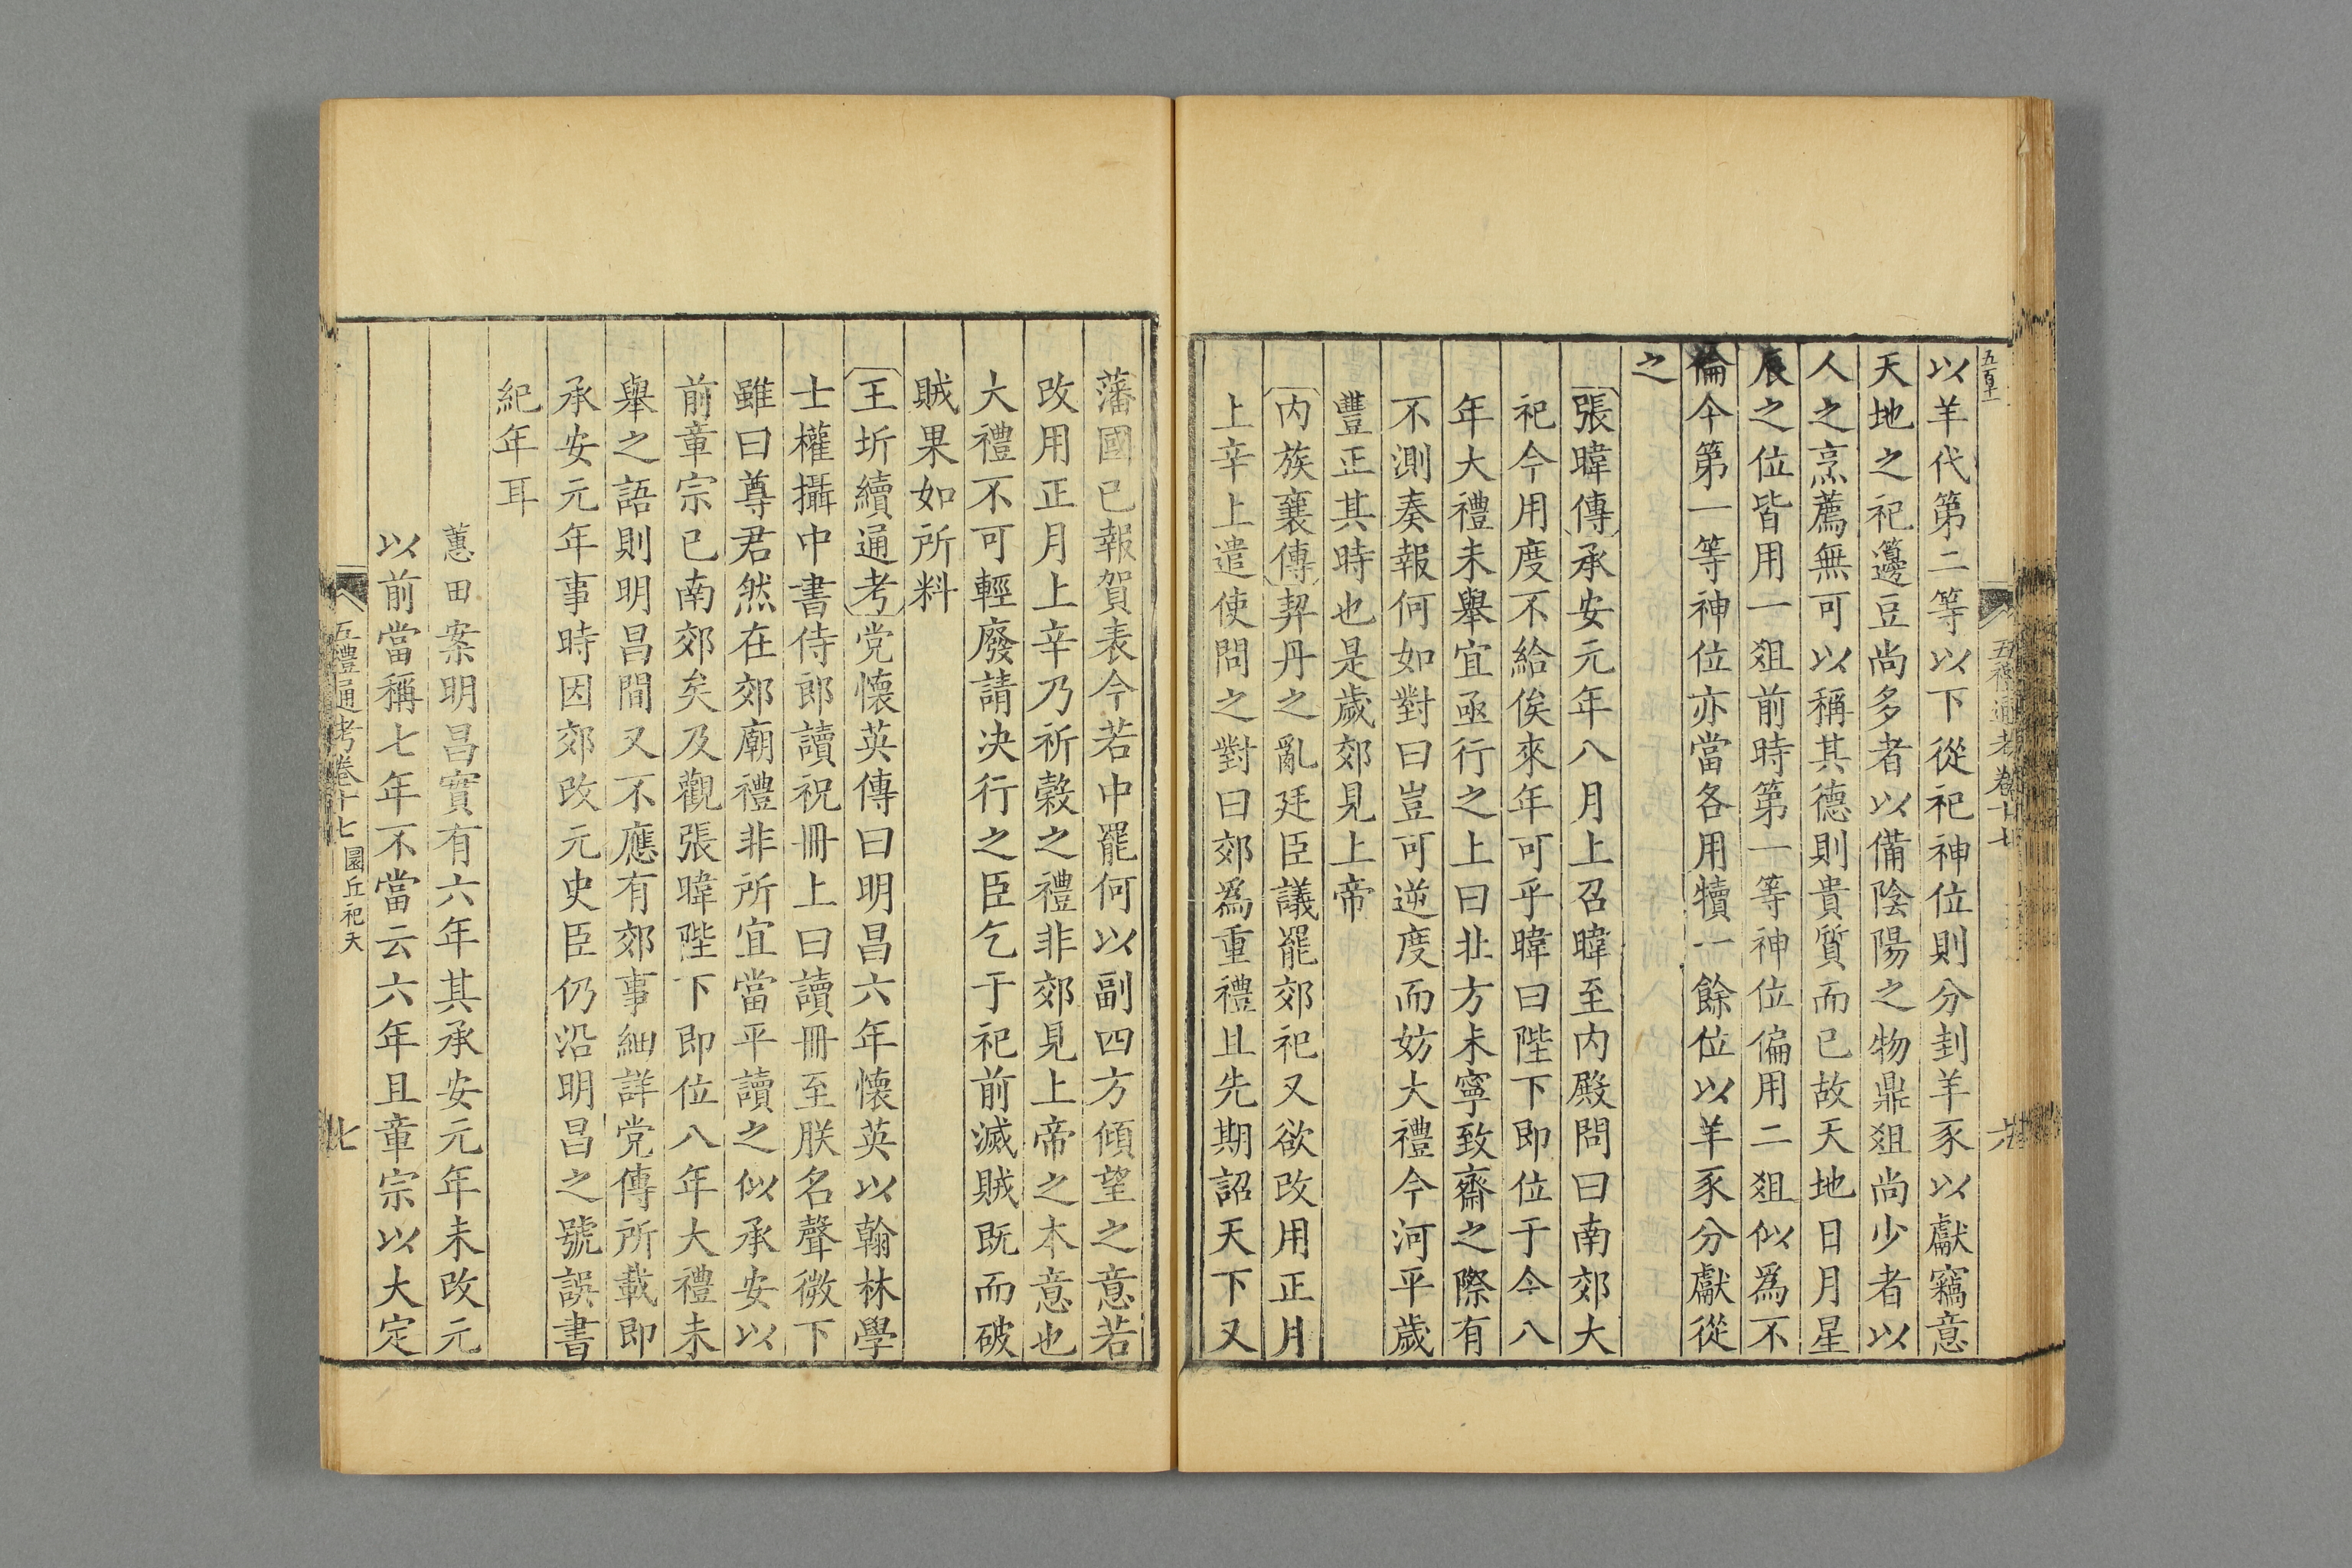 以羊代第二等以下從祀神位則分刲羊豕以獻竊意
天地之祀籩豆尚多者以備陰陽之物鼎俎尚少者以
人之烹薦無可以稱其德則貴質而已故天地日月星
辰之位皆用一俎前時第一等神位偏用二俎似為不
倫今第一等神位亦當各用犢一餘位以羊豕分獻從
之
張暐傳承安元年八月上召暐至内殿問曰南郊大
祀今用度不給俟來年可乎暐曰陛下即位于今八
年大禮未舉宜亟行之上曰北方未寧致齋之際有
不測奏報何如對曰豈可逆度而妨大禮今河平歲
豐正其時也是歲郊見上帝
内族襄傳契丹之亂廷臣議罷郊祀又欲改用正月
上辛上遣使問之對曰郊為重禮且先期詔天下又
藩國已報賀表今若中罷何以副四方傾望之意若
改用正月上辛乃祈穀之禮非郊見上帝之本意也
大禮不可輕廢請决行之臣乞于祀前滅賊既而破
賊果如所料
王圻續通考党懷英傳曰明昌六年懷英以翰林學
士權攝中書侍郎讀祝冊上曰讀冊至朕名聲微下
雖曰尊君然在郊廟禮非所宜當平讀之似承安以
前章宗已南郊矣及觀張暐陛下即位八年大禮未
舉之語則明昌間又不應有郊事細詳党傳所載即
承安元年事時因郊改元史臣仍沿明昌之號誤書
紀年耳
蕙田案明昌實有六年其承安元年未改元
以前當稱七年不當云六年且章宗以大定
五禮通考卷十七 圜丘祀天